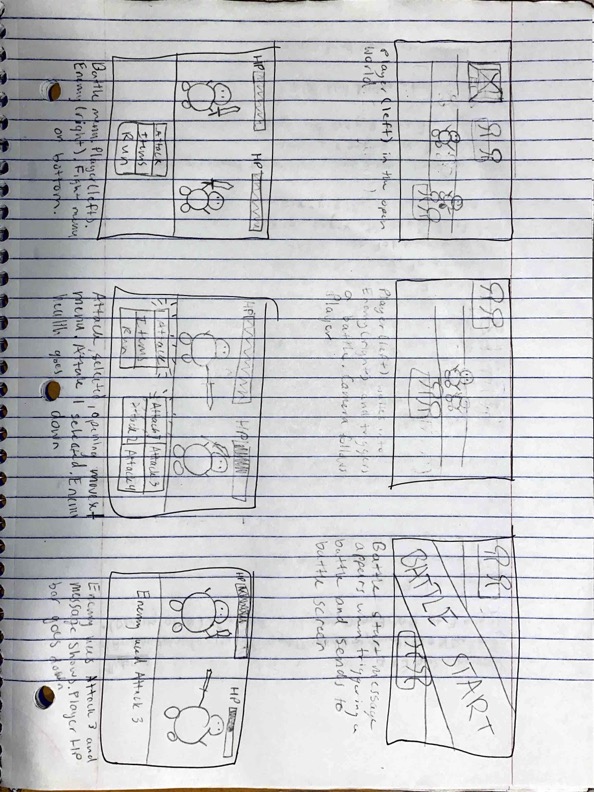 Player (left) in the open
World.
Player (left) runs into
Enemy (right) and triggers
a battle. Camera follows
Player
BATTLE
START
Battle start message
appears when triggering a
battle and sends to
battle screen
HP
HP
Attack
Items
Run
Battle menu, Player (left).
Enemy (right). Fight menu
on bottom.
HP
HP
Attack
Items
Run
Attack 1
Attack 3
Attack 2
Attack 4
Attack selected, opening
menu. Attack 1 selected. Enemy
health goes down
HP
HP
Enemy used Attack 3
Enemy uses Attack 3 and
message shows. Player HP
bar goes down